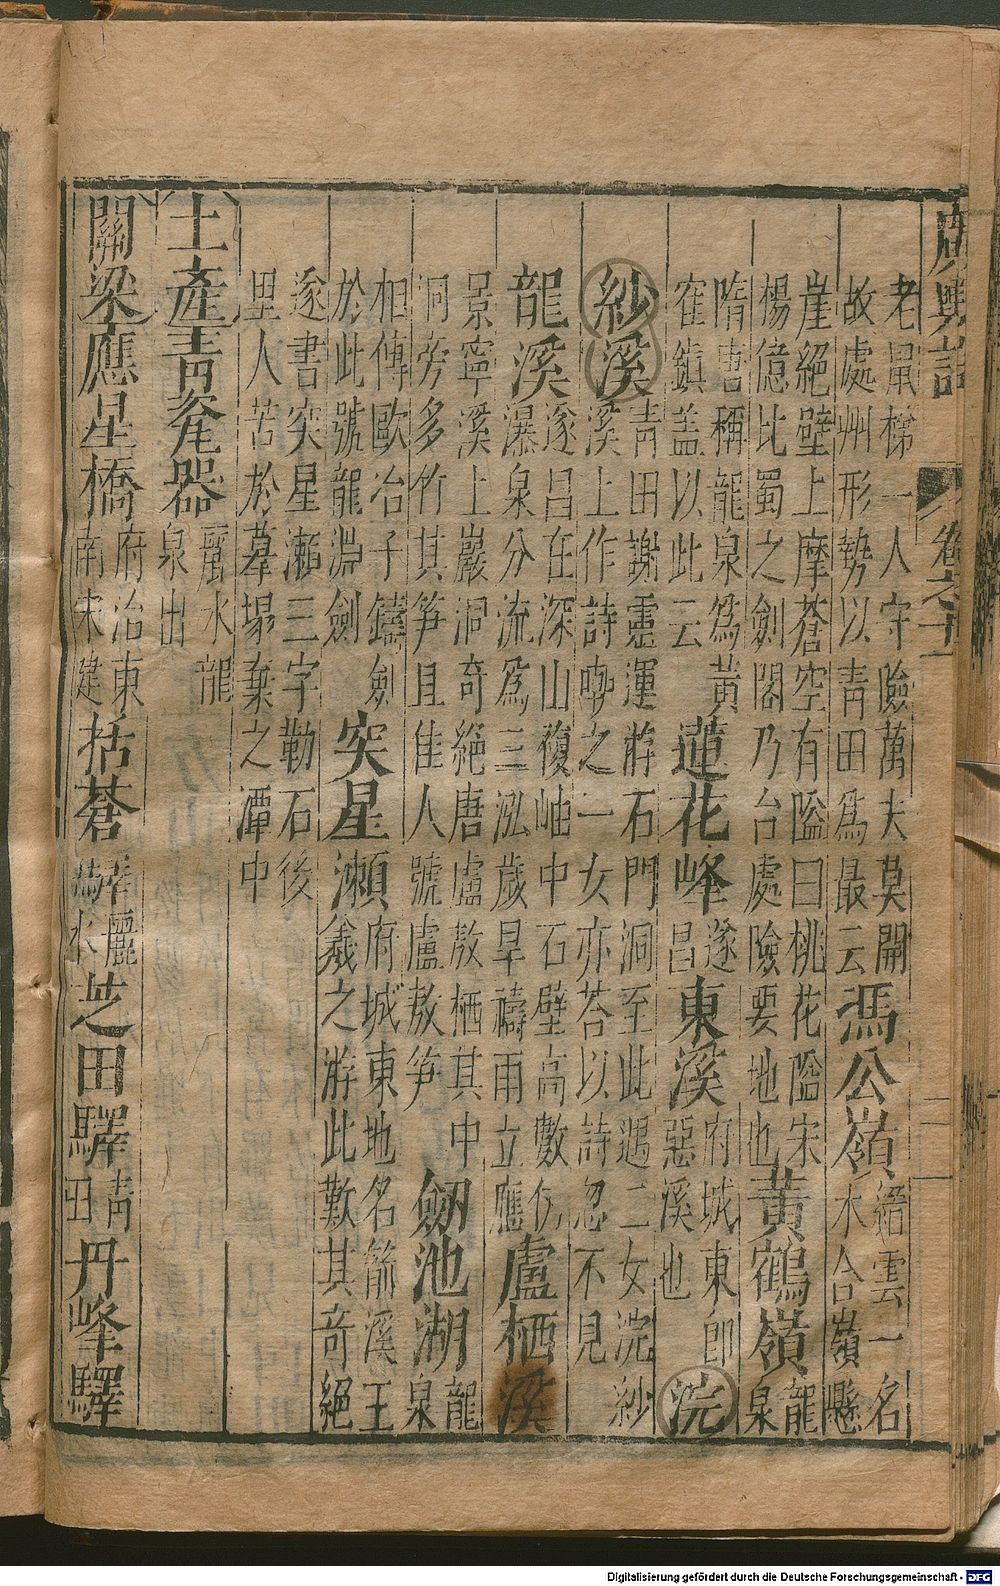 廣輿記 卷之十一
老鼠梯一人守險萬夫莫開
故處州形勢以青田爲最云
馮公嶺
縉雲一名
木合嶺懸
崖絕壁上摩蒼空有隘曰桃花隘宋
楊億比蜀之劍閣乃台處險要地也
黃鶴嶺
龍
泉
隋唐稱龍泉爲黃
隺鎮蓋以此云
蓮花峰
遂
昌
東溪
府城東即
惡溪也
浣
紗溪
青田謝靈運游石門洞至此遇二女浣紗
溪上作詩嘲之一女亦荅以詩忽不見
龍溪
遂昌在深山複岫中石壁高數仞
瀑泉分流爲三泓歲旱禱雨立應
盧栖溪
景寧溪上巖洞奇絕唐盧敖栖其中
洞旁多竹其笋且佳人號盧敖笋
劒池湖
龍
泉
相傳歐冶子鑄劍
於此號龍淵劍
突星瀨
府城東地名箭溪王
羲之游此歎其奇絕
遂書突星瀨三字勒石後
里人苦於摹搨棄之潭中
土產青瓷器
麗水龍
泉出
關梁應星橋
府治東
南宋建
括蒼
驛麗
水
芝田驛
青
田
丹峰驛
Digitalisierung gefördert durch die Deutsche Forschungsgemeinschaft - DFG